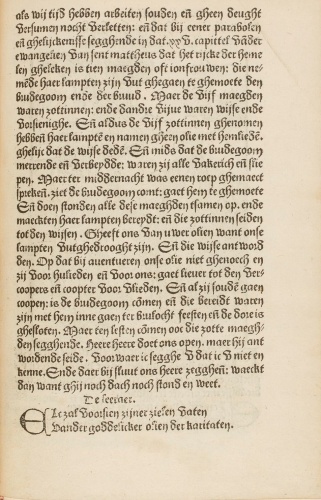 als wij tijd hebben arbeiten souden eñ gheen deught
versumen nocht verletten: eñ dat bij eener parabolen
eñ ghelijckenisse segghende in dat .xxv. capittel vāder
ewangelien van sent mattheus dat het rijcke der heme
len gheleken is tien maegden oft ionfrouwen: die ne-
mēde haer lampten zijn vut ghegaen te ghemoete den
brudegoom ende der bruud. Maer de vijf maegden
waren zottinnen: ende dandre vijue waren wijse ende
vorsienighe. Eñ aldus de vijf zottinnen ghenomen
hebbeñ haer lamptē eñ namen gheen olie met hemliedē.
ghelijc dat de wijse dedē. Eñ mids dat de brudegoom
merrende eñ verbeyde: waren zij alle vakerich eñ slie
pen. Maer ter middernacht was eenen roep ghemaect
sprekeñ. ziet de brudegoom comt: gaet hem te ghemoete
Eñ doen stonden alle dese maeghden tsamen op. ende
maeckten haer lampten bereydt: eñ die zottinnen seiden
tot den wijsen. Gheeft ons van uwer olien want onse
lampten vutghedrooght zijn. Eñ die wijse antwoord
den. Op dat bij auentueren onse olie niet ghenoech en
zij voor hulieden eñ voor ons: gaet lieuer tot den ver-
coopers eñ coopter voor vlieden. Eñ al zij soudē gaen
coopen: is de brudegoom cōmen eñ die bereidt waren
zijn met hem inne gaen ter brulocht feesten eñ de dore is
ghesloten. Maer ten lesten cōmen ooc die zotte maegh-
den segghende. Heere heere doet ons open. maer hij ant
wordende seide. Voorwaer ic segghe v dat ic v niet en
kenne. Ende daer bij sluut ons heere zegghen: waeckt
dan want ghij noch dach noch stond en weet.
De leeraer.
Elc zal voorsien zijner zielen vaten
Vander goddelicker olien der karitaten.